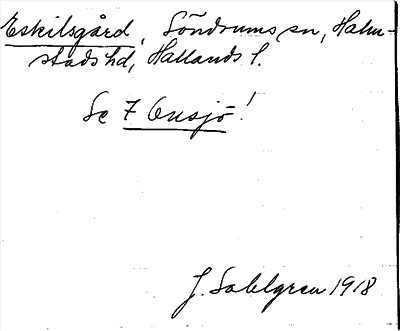 Eskilsgård, Söndrums sn, Halm-
stads hd, Hallands l.
Se 7 Gusjö!
J. Sahlgren 1918